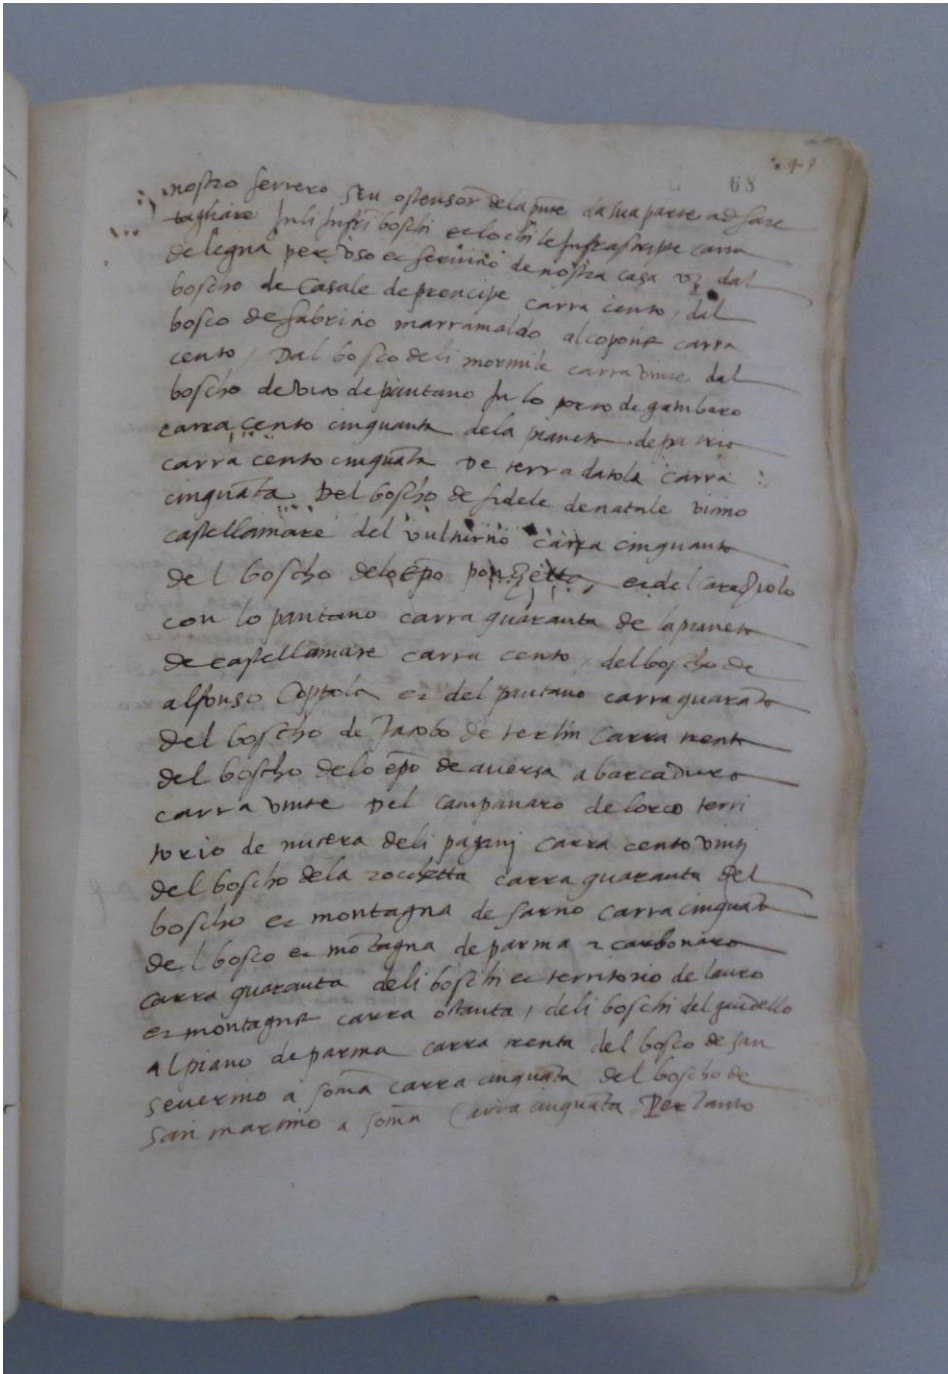 49
68
nostro ferrero seu ostensor de la pnte da sua parte ad fare
tagliare in li infri boschi et lochi le infrascripte carra
de legna per uso et servitio de nostra casa vz dal
boscho de Casale de prencipe carra cento, dal
bosco de fabritio marramaldo al copone carra
cento, Dal bosco de li mormile carra vinte dal
boscho de de pantano in lo de gambaro
carra cento cinquanta de la pianeta de patrio
carra cento cinquāta De terra datola carra
cinquāta Del boscho de fidele de natale vicino
castellamare del vulturno carra cinquanta
del boscho de lo epo et del Carazolo
con lo pantano carra quaranta de la pianeta
de castellamare carra cento del boscho de
alfonso Coppola et del pantano carra quaranta
del boscho de Jacobo de terlin carra trenta
del boscho de lo epo de aversa a barcaduro
carra vinte Del campanaro de lorco terri
torio de nucera de li pagani carra cento vinti
del boscho de la rocchetta carra quaranta del
boscho et montagna de sarno carra cinquāta
del bosco et mōtagna de parma et carbonaro
carra quaranta de li boschi et territorio de lauro
et montagne carra ottanta, de li boschi del
al piano de parma carra trenta del bosco de san
severino a sōma carra cinquāta del boscho de
san martino a sōma Carra cinquāta, Per tanto